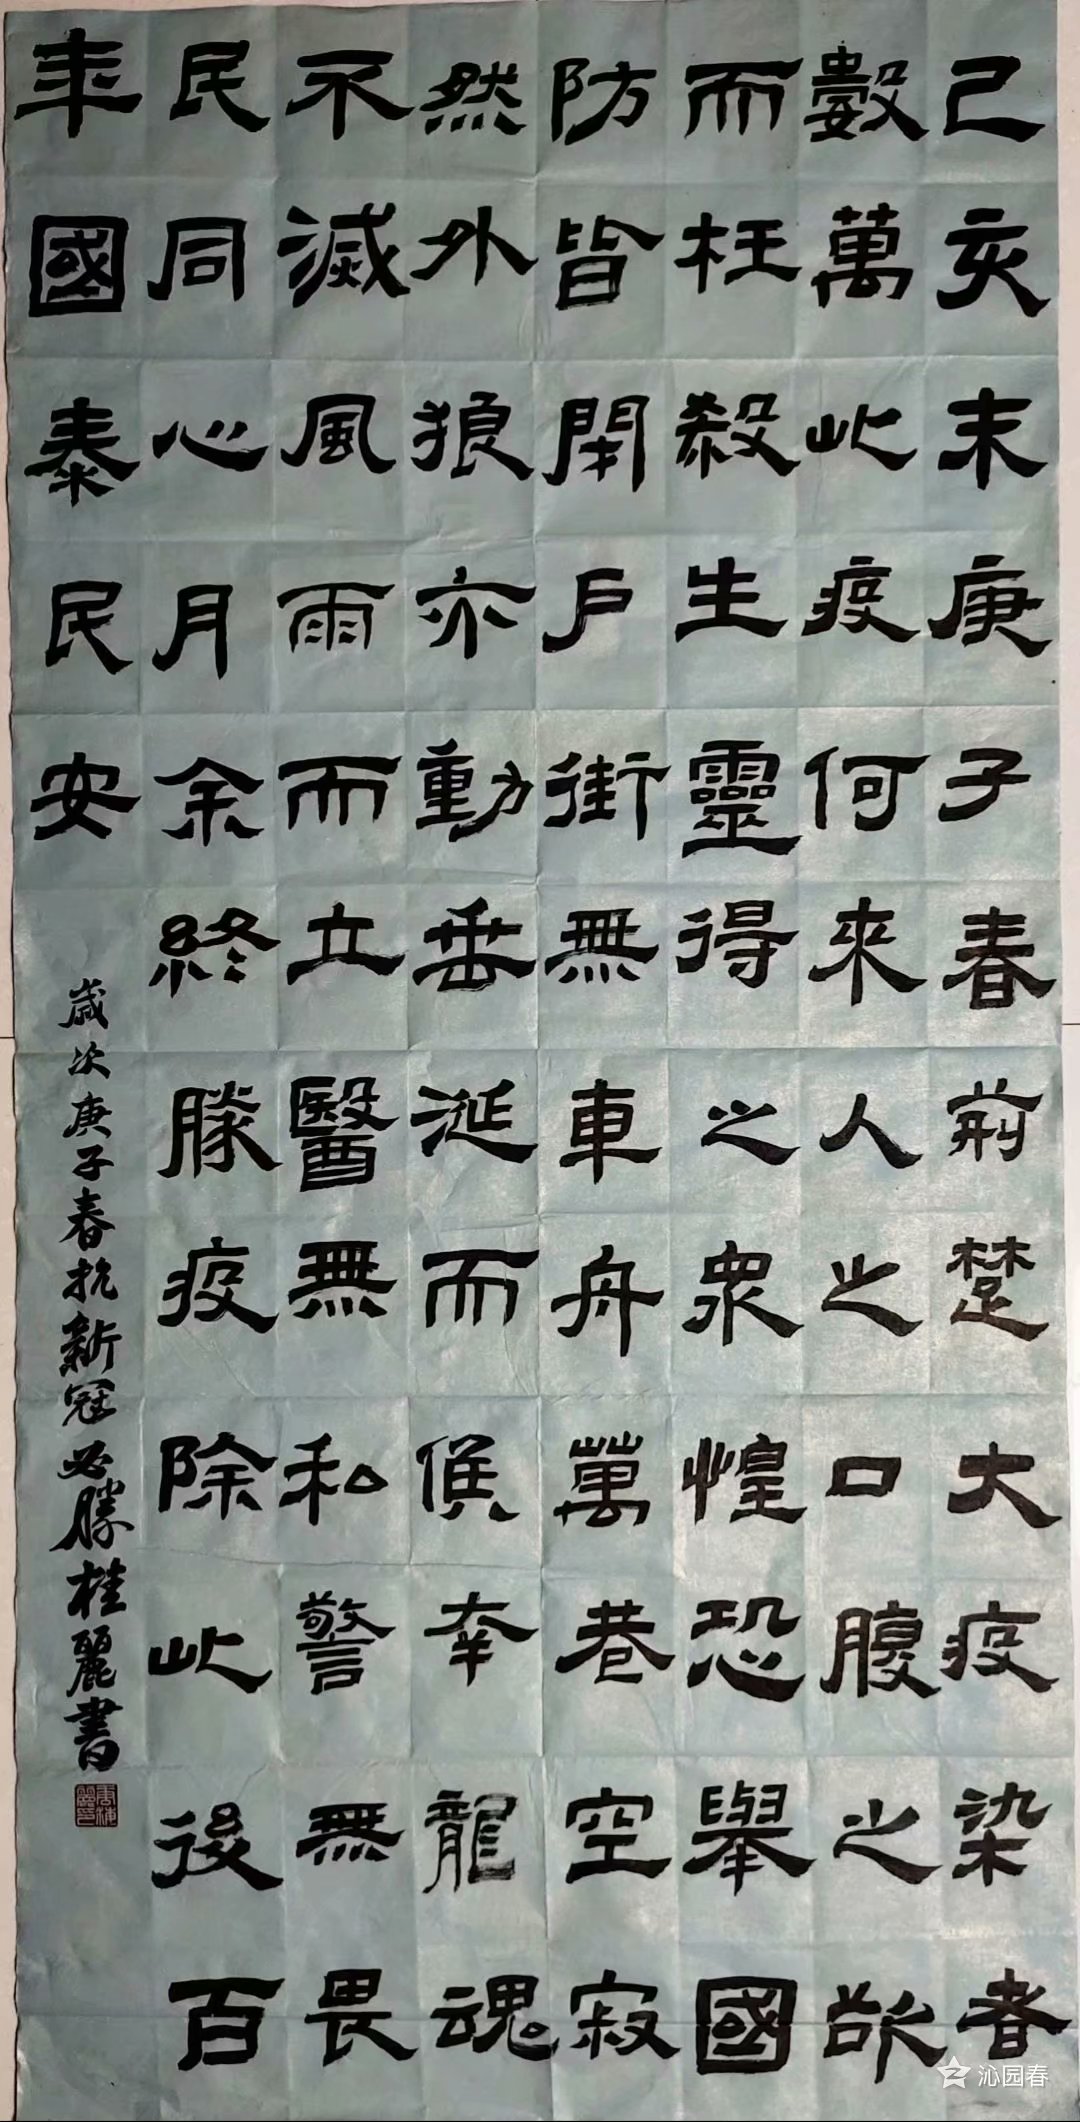 己亥末庚子春荊楚大疫染者
數萬此疫何來人之口腹之欲
而枉殺生靈得之眾惶恐舉國
防皆閉戶街無車舟萬巷空寂
然外狼亦動垂涎而候幸龍魂
不滅風雨而立醫無私警無畏
民同心月余終勝疫除此後百
年國泰民安
歲次庚子春抗新冠必勝桂麗書
沁园春